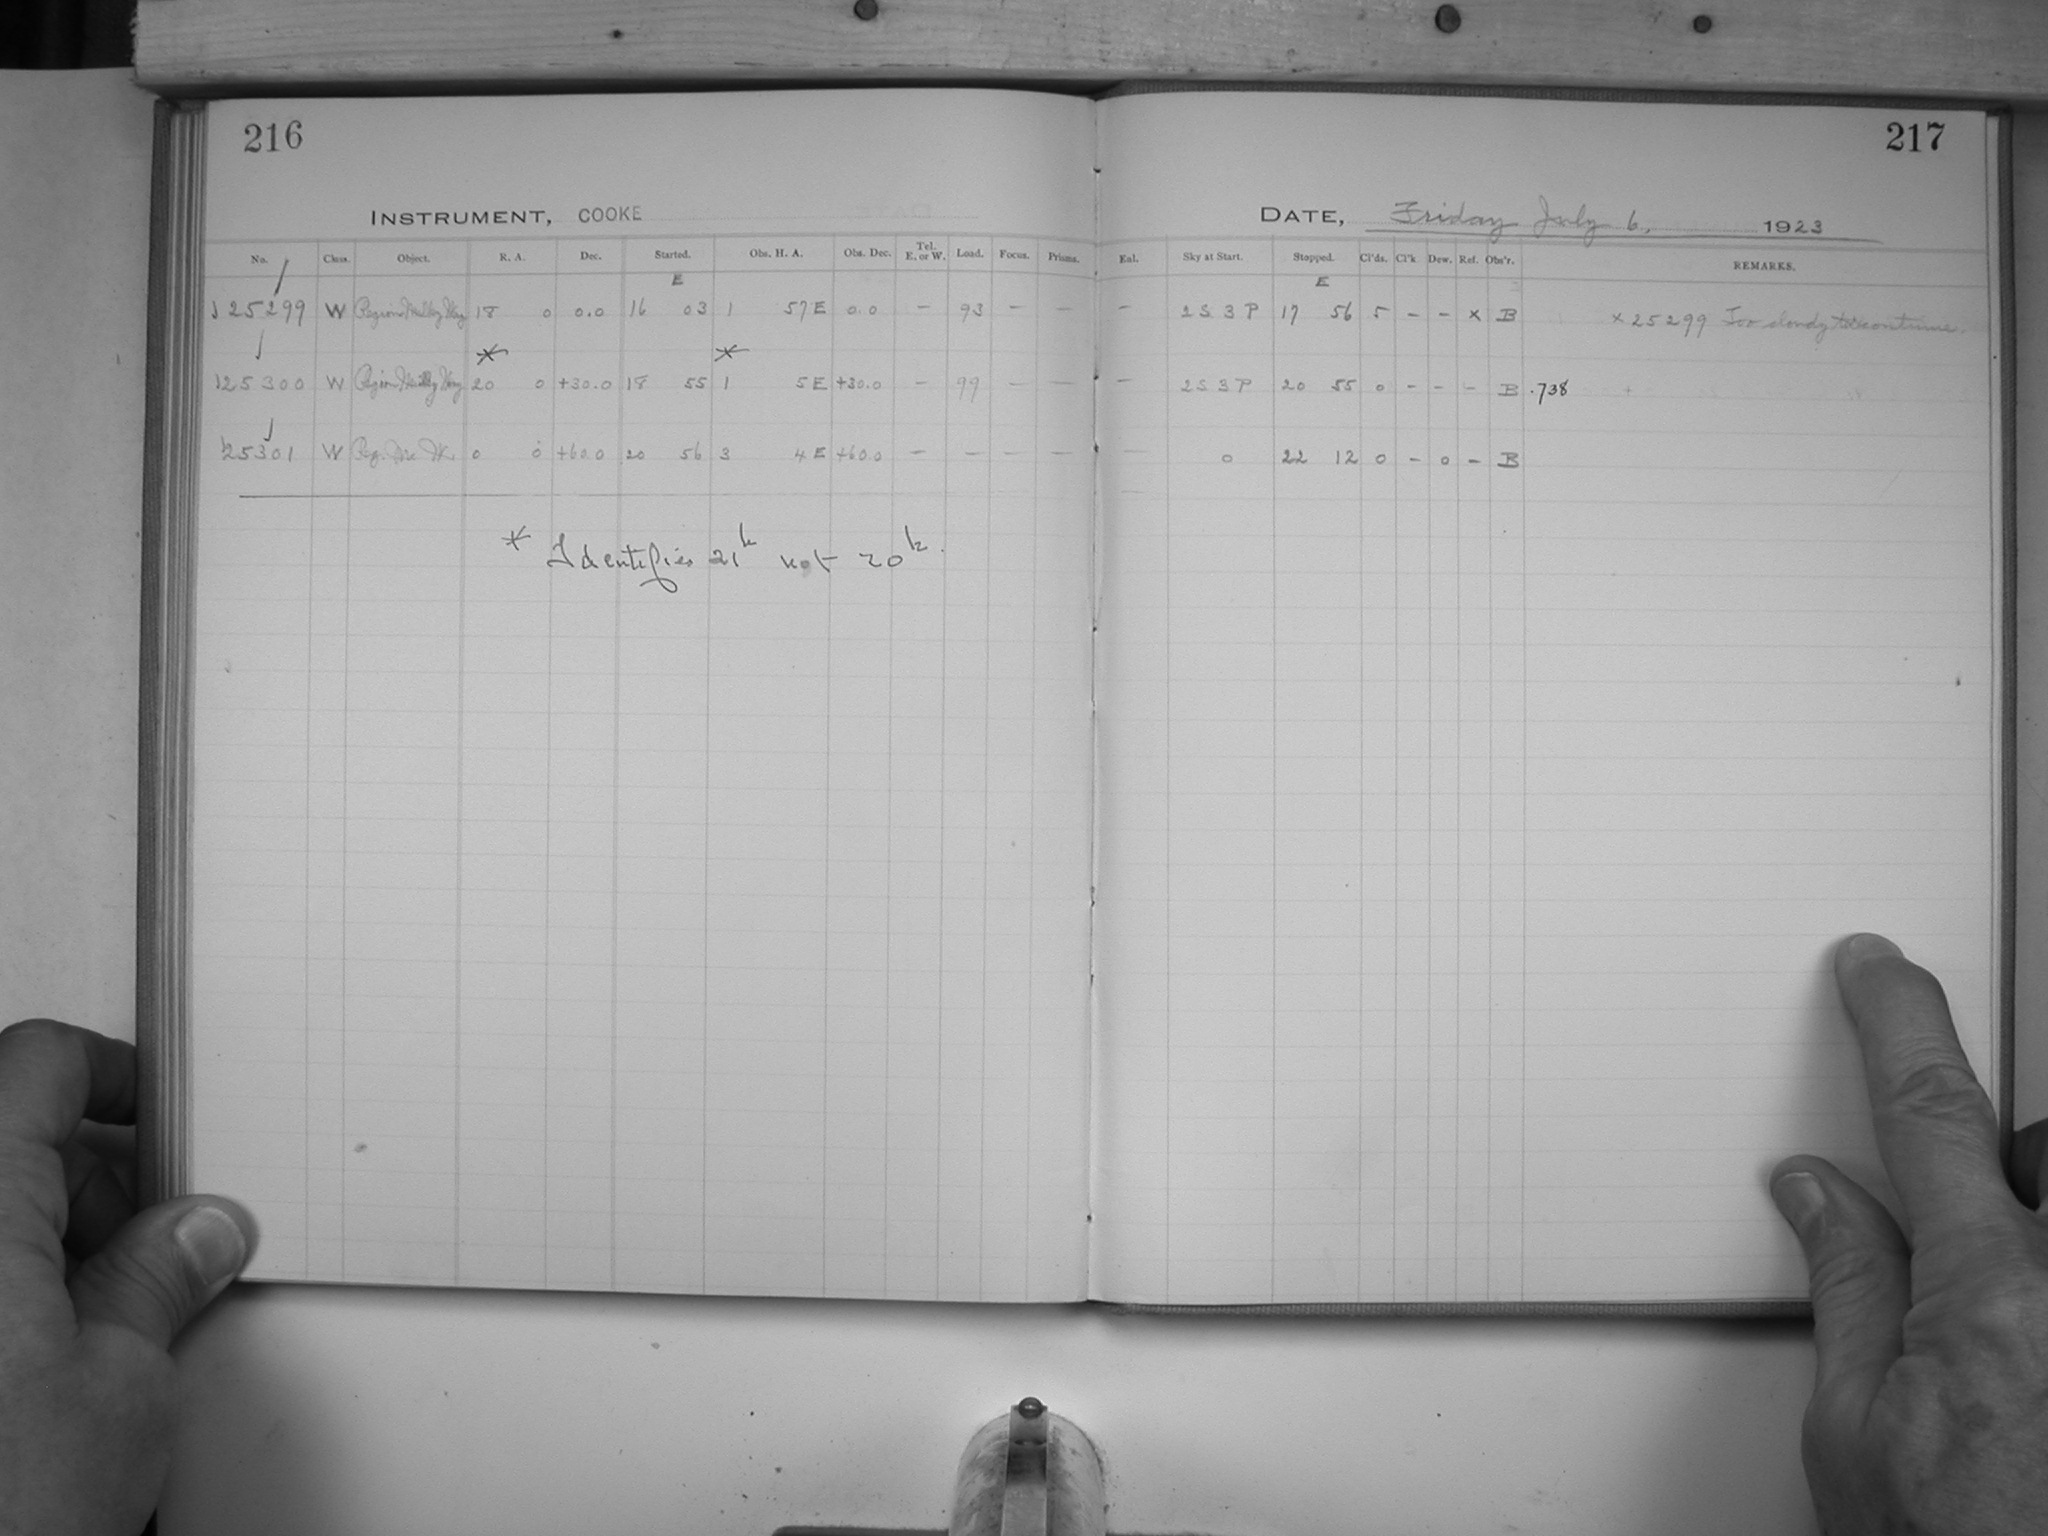 216
217
INSTRUMENT, COOKE
DATE, Friday July 6, 1923
No. Class. Object. R. A. Dec. Started. Obs. H. A. Obs. Dec. Tel. E. or W. Load. Focus. Prisms. Eal. Sky at Start. Stopped. Cl'ds. Cl'k Dew. Ref. Obs'r. REMARKS.
E E
25299 W Region Milky Way 18 0 0.0 16 03 1 57 E 0.0 – 93 – – – 2 S 3 P 17 56 5 – – x B x 25299 Too cloudy to continue.
* *
25300 W Region Milky Way 20 0 +30.0 18 55 1 5 E +30.0 – 99 – – – 2 S 3 P 20 55 0 – – – B .738
25301 W Reg. 0 0 +60.0 20 56 3 4 E +60.0 – – – – – 0 22 12 0 – 0 – B
* Identifies 21h not 20h.